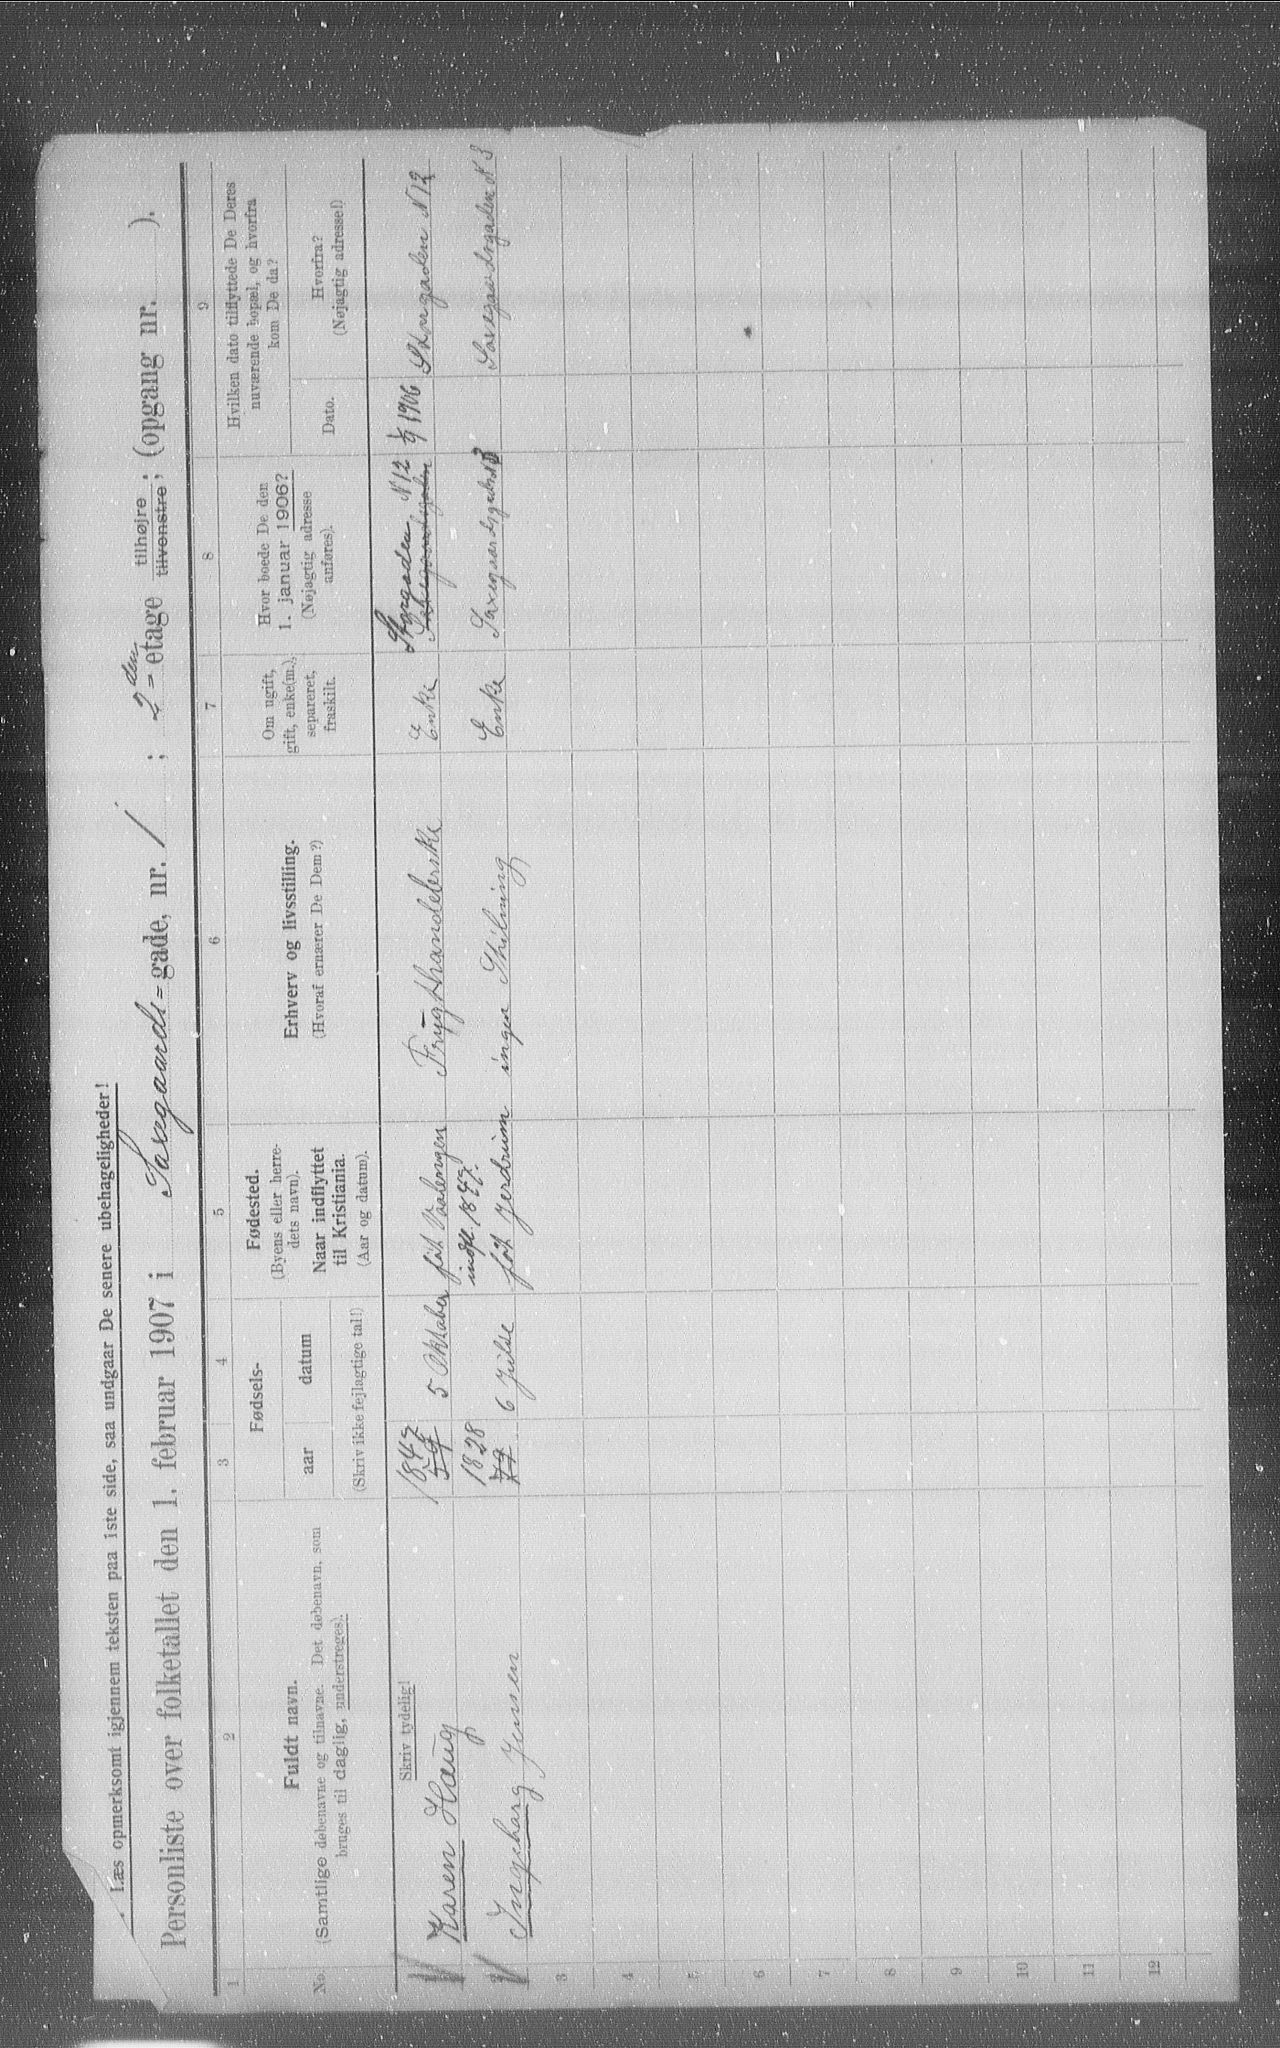 Læs opmerksomt igjennem teksten paa 1ste side, saa undgaar De senere ubehageligheder!
Personliste over folketallet den 1. februar 1907 i Saxegaards=gade, nr. 1 ; 2den=etage tilhøjre tilvenstre ; (opgang nr. ).
1 2 3 4 5 6 7 8 9
No.
Fuldt navn.
(Samtlige døbenavne og tilnavne. Det døbenavn, som
bruges til daglig, understreges).
Fødsels-
aar datum
(Skriv ikke fejlagtige tal!)
Fødested.
(Byens eller herre-
dets navn).
Naar indflyttet
til Kristiania.
(Aar og datum).
Erhverv og livsstilling.
(Hvoraf ernærer De Dem?)
Om ugift,
gift, enke(m.),
separeret,
fraskilt.
Hvor boede De den
1. januar 1906?
(Nøjagtig adresse
anføres).
Hvilken dato tilflyttede De Deres
nuværende bopæl, og hvorfra
kom De da?
Dato.
Hvorfra?
(Nøjagtig adresse!)
Skriv tydelig!
Karen Haug 1847 59 5 Oktober föt Vaalengen indfl. 1847. Frügthandlerske Enke Storgaden N 12 1/9 1906 Storgaden N 12
Ingeborg Jensen 1828 79 6 Julie föt Jerdrum ingen Stilning Enke Saxegaardsgaden 3 Saxegaardsgaden N 3
3
4
5
6
7
8
9
10
11
12